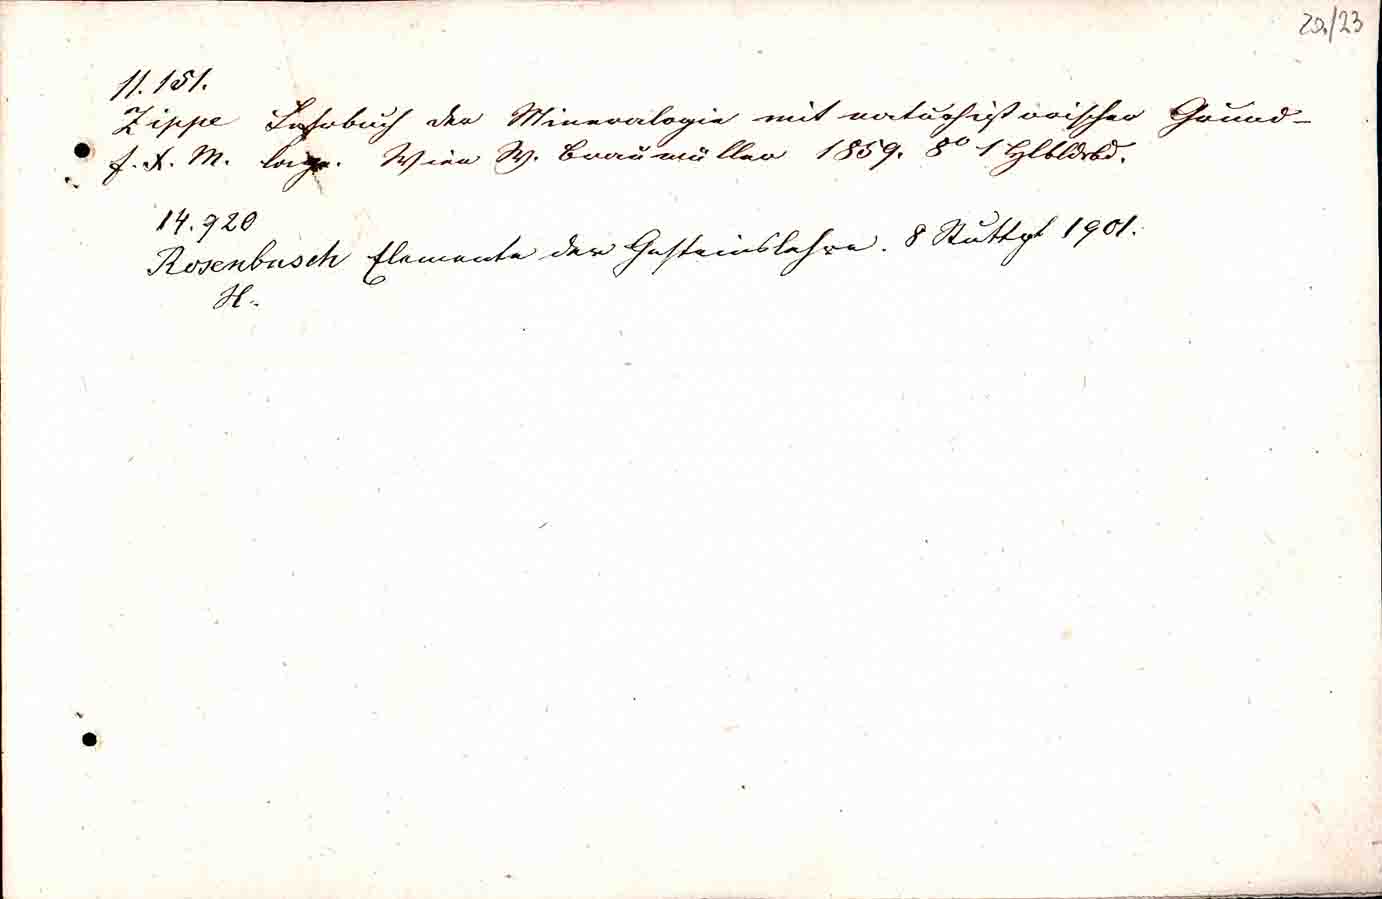 20./23
11.151.
Zippe Lehrbuch der Mineralogie mit naturhistorischer Grund-
F. X. M. lage. Wien W. Braumüller 1859. 8° 1 Hlbldrbd.
14.920
Rosenbusch Elemente der Gesteinslehre. 8 Stuttgt 1901.
H.